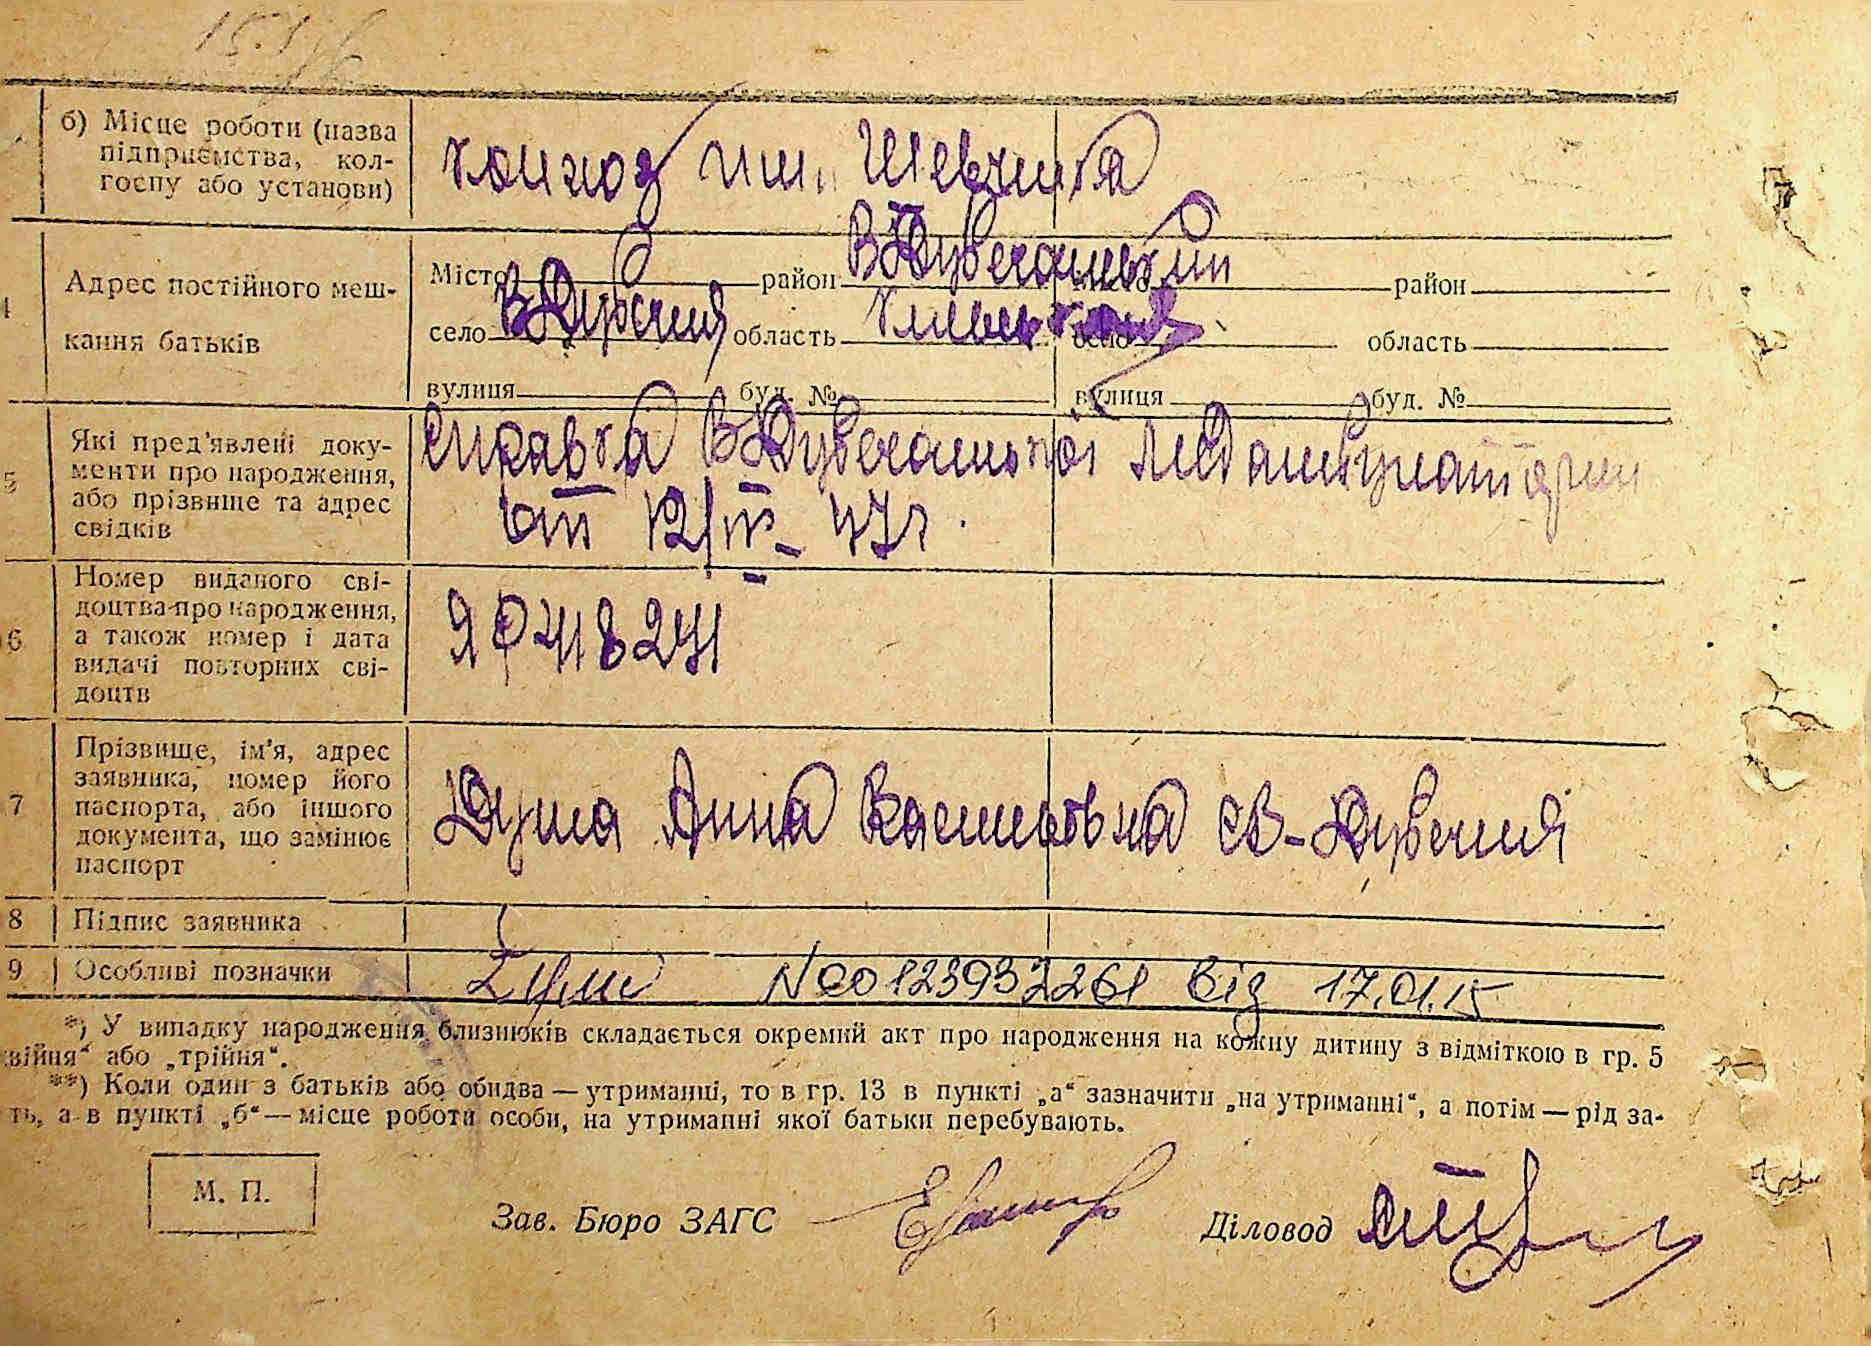 б) Місце роботи (назва
підприємства, кол-
госпу або установи)
колхоз им. Шевченка
4
Адрес постійного меш-
кання батьків
Місто район В Дубечанський район
село В Дубечня область Киевская село область
вулиця буд. № вулиця буд. №
5
Які пред'явлені доку-
менти про народження,
або прізвище та адрес
свідків
справка В Дубечанської медамбулатории
от 12/IV- 47г.
6
Номер виданого сві-
доцтва про народження,
а також номер і дата
видачі повторних сві-
доцтв
7
Прізвище, ім'я, адрес
заявника, номер його
паспорта, або іншого
документа, що замінює
паспорт
Анна Васильовна с В-Дубечня
8 Підпис заявника
9 Особливі позначки
№00123932261 від 17.01.15
*) У випадку народження близнюків складається окремий акт про народження на кожну дитину з відміткою в гр. 5
війня" або „трійня".
**) Коли один з батьків або обидва — утриманці, то в гр. 13 в пункті „а" зазначити „на утриманні", а потім — рід за-
ть, а в пункті „б" — місце роботи особи, на утриманні якої батьки перебувають.
М. П.
Зав. Бюро ЗАГС Діловод